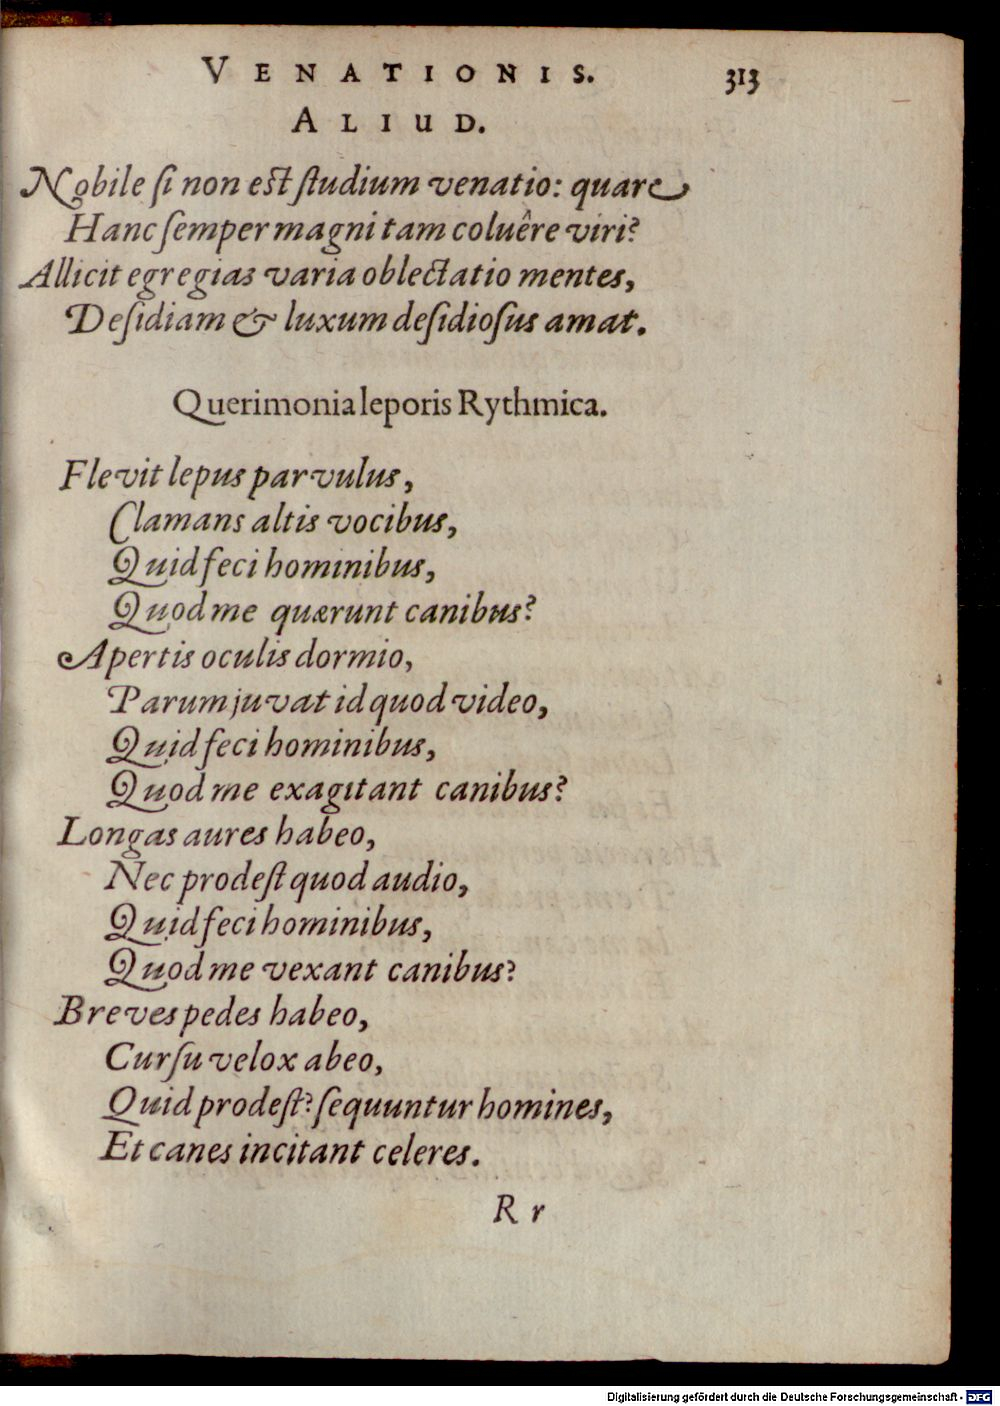 VENATIONIS. 313
ALIUD.
Nobile ſi non est ſtudium venatio: quare
Hanc ſemper magni tam coluêre viri?
Allicit egregias varia oblectatio mentes,
Deſidiam & luxum deſidioſus amat.
Querimonia leporis Rythmica.
Flevit lepus parvulus,
Clamans altis vocibus,
Quid feci hominibus,
Quod me quærunt canibus?
Apertis oculis dormio,
Parum juvat id quod video,
Quid feci hominibus,
Quod me exagitant canibus?
Longas aures habeo,
Nec prodeſt quod audio,
Quid feci hominibus,
Quod me vexant canibus?
Breves pedes habeo,
Curſu velox abeo,
Quid prodeſt? ſequuntur homines,
Et canes incitant celeres.
R r
Digitalisierung gefördert durch die Deutsche Forschungsgemeinschaft - DFG